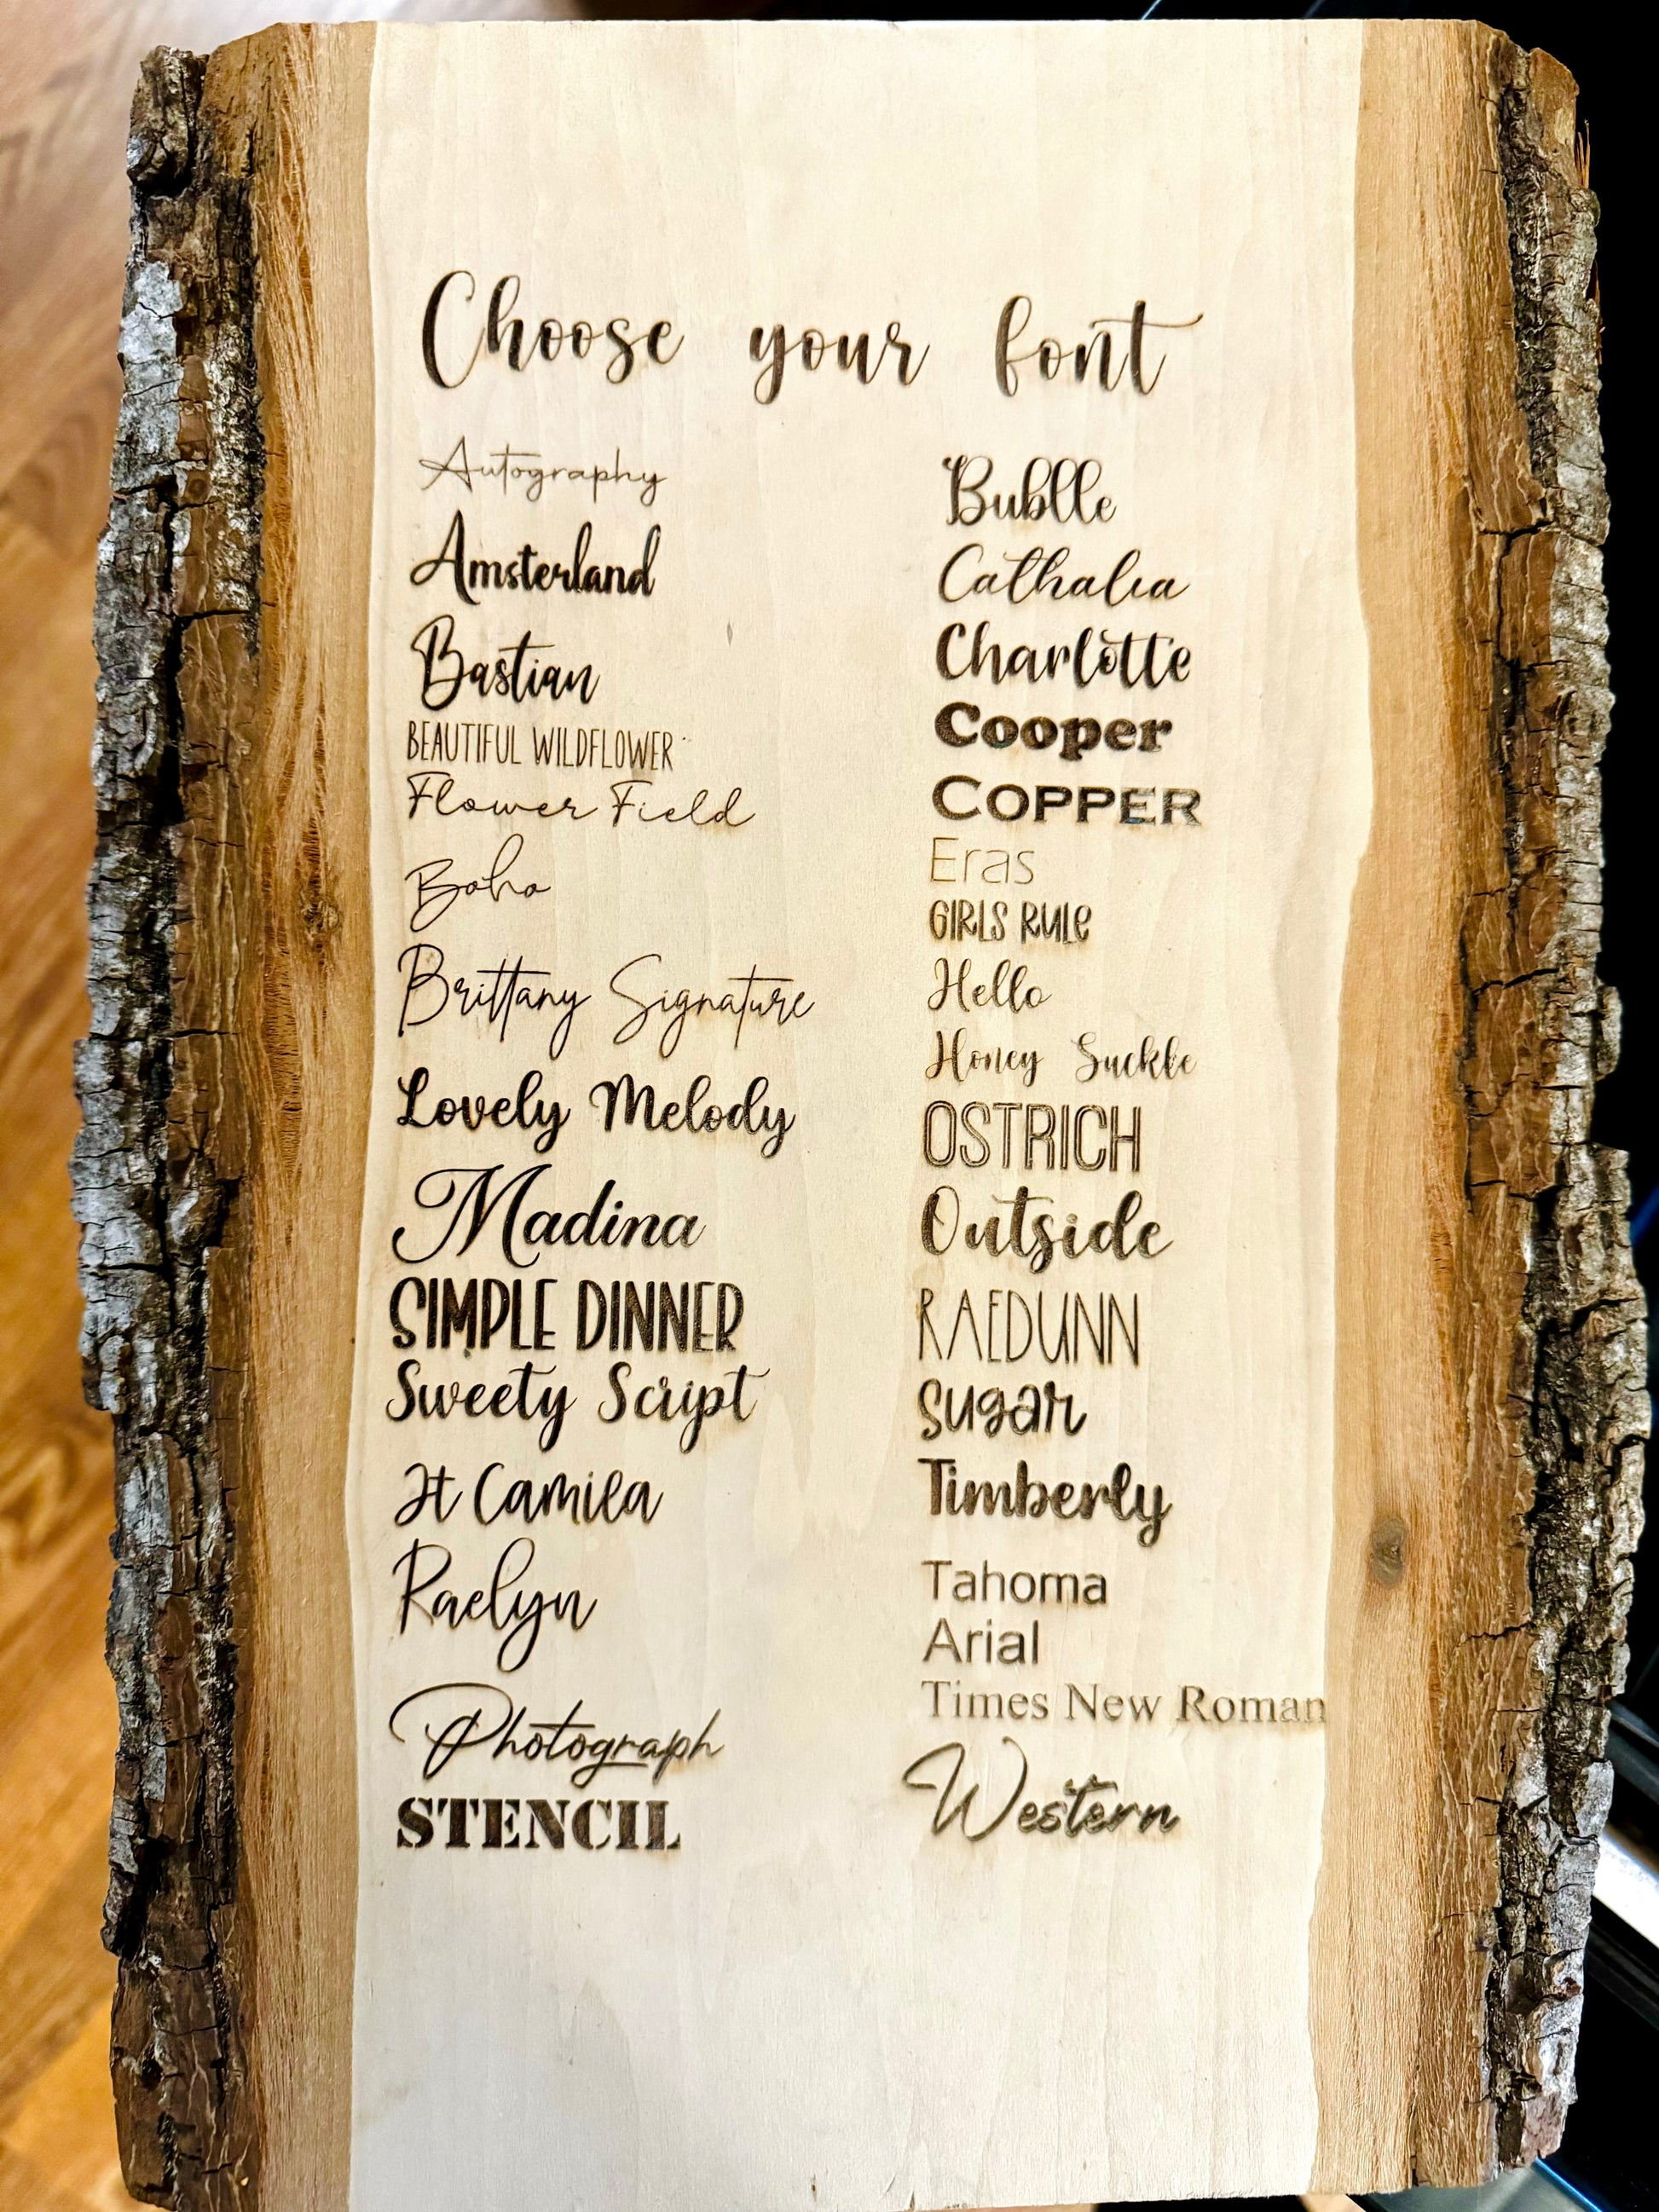 Choose your font
Autography
Amsterland
Bastian
BEAUTIFUL WILDFLOWER
Flower Field
Boho
Brittany Signature
Lovely Melody
Madina
SIMPLE DINNER
Sweety Script
Jt Camila
Raelyn
Photograph
STENCIL
Bublle
Cathalia
Charlotte
Cooper
COPPER
Eras
GIRLS RULe
Hello
Honey Suckle
OSTRICH
Outside
RAEDUNN
sugar
Timberly
Tahoma
Arial
Times New Roman
Western